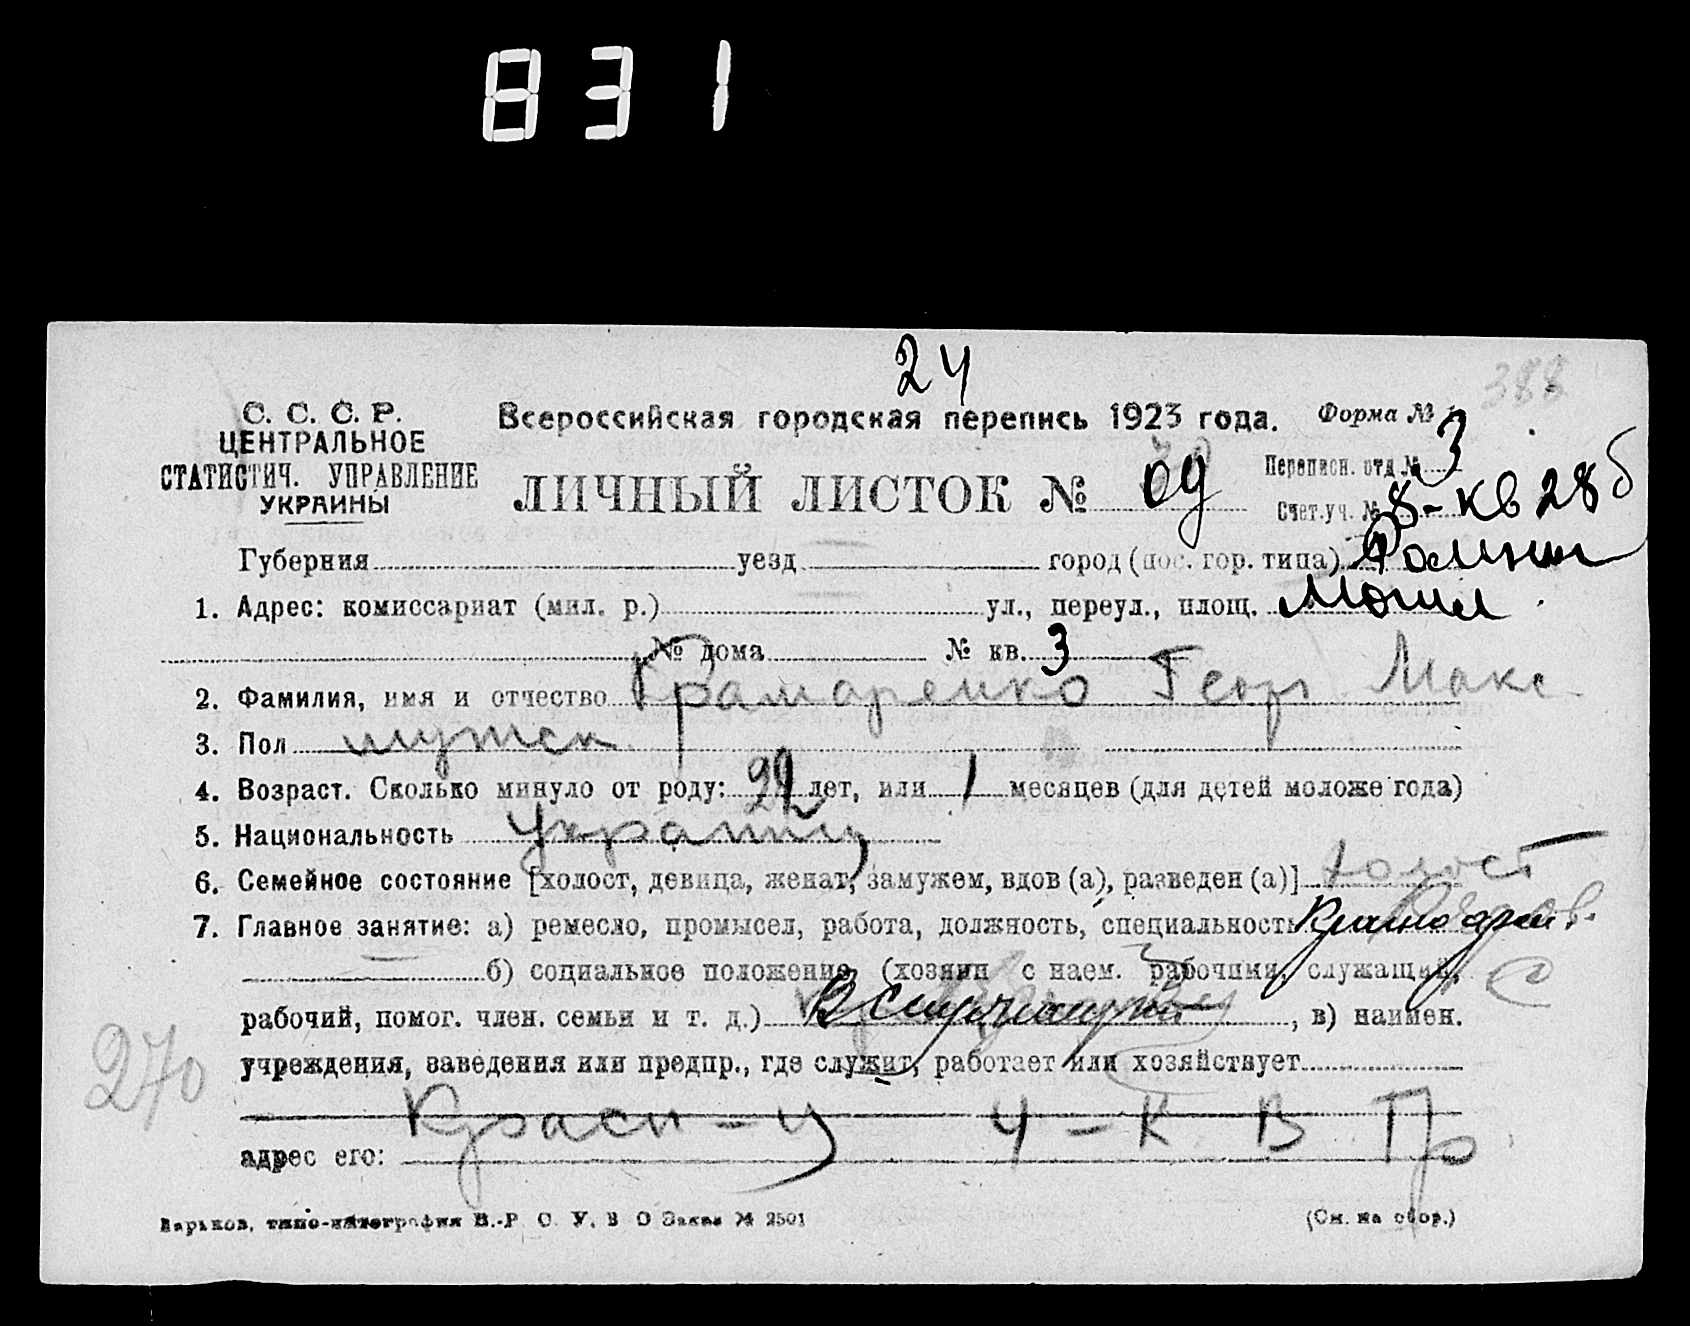 831
24
388
С. С. С. Р.
ЦЕНТРАЛЬНОЕ
СТАТИСТИЧ. УПРАВЛЕНИЕ
УКРАИНЫ
Всероссийская городская перепись 1923 года.
Форма №
ЛИЧНЫЙ ЛИСТОК №
Переписн. отд № 3
Счет.уч. № 8-кв 28 б
Губерния уезд город (пос. гор. типа)
1. Адрес: комиссариат (мил. р.) ул., переул., площ.
№ дома № кв. 3
2. Фамилия, имя и отчество Грамаренко Геор Макс
3. Пол мужск
4. Возраст. Сколько минуло от роду: 22 лет, или месяцев (для детей моложе года)
5. Национальность украинец
6. Семейное состояние [холост, девица, женат, замужем, вдов (а), разведен (а)] холост
7. Главное занятие: а) ремесло, промысел, работа, должность, специальность
б) социальное положение (хозяин с наем. рабочими, служащий,
рабочий, помог. член. семьи и т. д.) , в) наимен.
учреждения, заведения или предпр., где служит, работает или хозяйствует
270
Красн-ц 4-К В Пр
адрес его:
Харьков, типо-литография В.-Р С. У. В О Заказ № 2501
(См. на обор.)